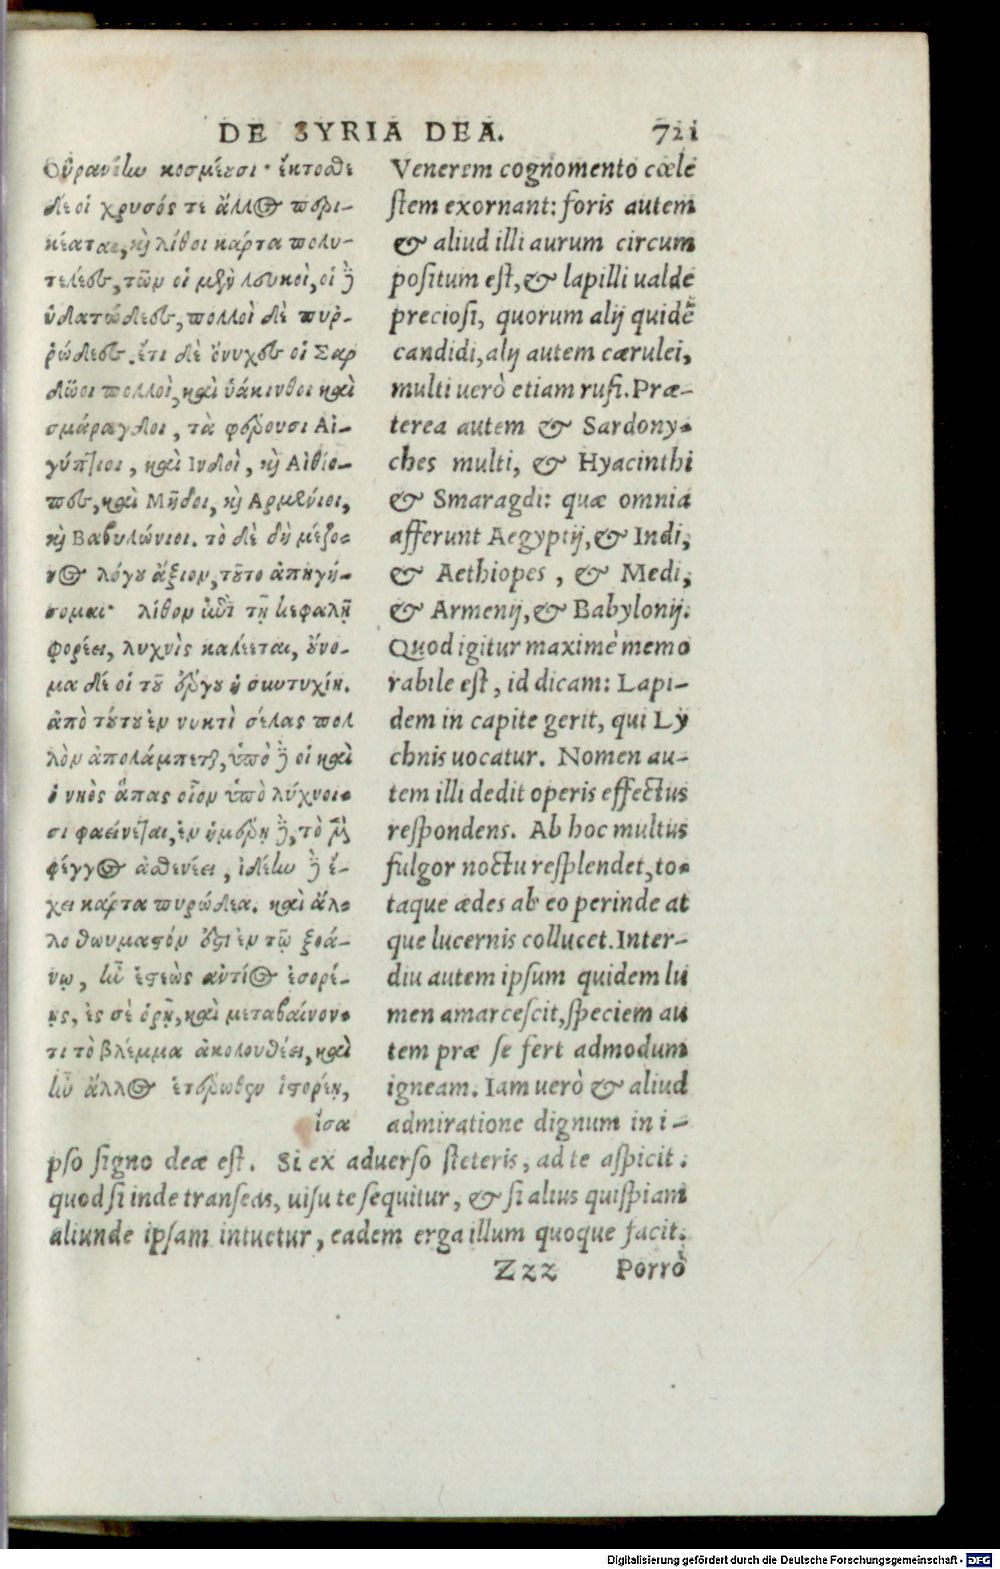 DE SYRIA DEA. 721
Οὐρανίην κοσμέουσι· ἔκτοσθε
δέ οἱ χρυσός τε ἄλλος περι-
κέαται, καὶ λίθοι κάρτα πολυ-
τελέες, τῶν οἱ μὲν λευκοὶ, οἱ δὲ
ὑδατώδεες, πολλοὶ δὲ πυρ-
ρώδεες. ἔτι δὲ ὄνυχες οἱ Σαρ
δῶοι πολλοὶ, καὶ ὑάκινθοι καὶ
σμάραγδοι, τὰ φέρουσι Αἰ-
γύπτιοι, καὶ Ινδοὶ, καὶ Αἰθίο-
πες, καὶ Μῆδοι, καὶ Αρμένιοι,
καὶ Βαβυλώνιοι. τὸ δὲ δὴ μέζο-
νος λόγου ἄξιον, τοῦτο ἀπηγή-
σομαι· λίθον ἐπὶ τῇ κεφαλῇ
φορέει, λυχνὶς καλέεται, οὔνο-
μα δέ οἱ τοῦ ἔργου ἡ συντυχίη.
ἀπὸ τούτου ἐν νυκτὶ σέλας πολ
λὸν ἀπολάμπεται, ὑπὸ δὲ οἱ καὶ
ὁ νηὸς ἅπας οἷον ὑπὸ λύχνοι-
σι φαείνεται, ἐν ἡμέρῃ δὲ, τὸ μὲν
φέγγος ἀσθενέει, ἰδέην δὲ ἔ-
χει κάρτα πυρώδεα. καὶ ἄλ-
λο θωυμαστόν ἐστι ἐν τῷ ξοά-
νῳ, ἢν ἑστεὼς ἀντίος ἐσορέ-
ῃς, ἐς σὲ ὁρῇ, καὶ μεταβαίνον-
τι τὸ βλέμμα ἀκολουθέει, καὶ
ἢν ἄλλος ἑτέρωθεν ἱστορέῃ,
ἴσα
Venerem cognomento cœle
stem exornant: foris autem
& aliud illi aurum circum
positum est, & lapilli ualde
preciosi, quorum alij quidē
candidi, alij autem cærulei,
multi uerò etiam rufi. Præ-
terea autem & Sardony-
ches multi, & Hyacinthi
& Smaragdi: quæ omnia
afferunt Aegyptij, & Indi,
& Aethiopes, & Medi,
& Armenij, & Babylonij.
Quod igitur maximè memo
rabile est, id dicam: Lapi-
dem in capite gerit, qui Ly
chnis uocatur. Nomen au-
tem illi dedit operis effectus
respondens. Ab hoc multus
fulgor noctu resplendet, to-
taque ædes ab eo perinde at
que lucernis collucet. Inter-
diu autem ipsum quidem lu
men amarcescit, speciem au
tem præ se fert admodum
igneam. Iam uerò & aliud
admiratione dignum in i-
pso signo deæ est. Si ex aduerso steteris, ad te aspicit:
quod si inde transeas, uisu te sequitur, & si alius quispiam
aliunde ipsam intuetur, eadem erga illum quoque facit.
Zzz Porrò
Digitalisierung gefördert durch die Deutsche Forschungsgemeinschaft - DFG